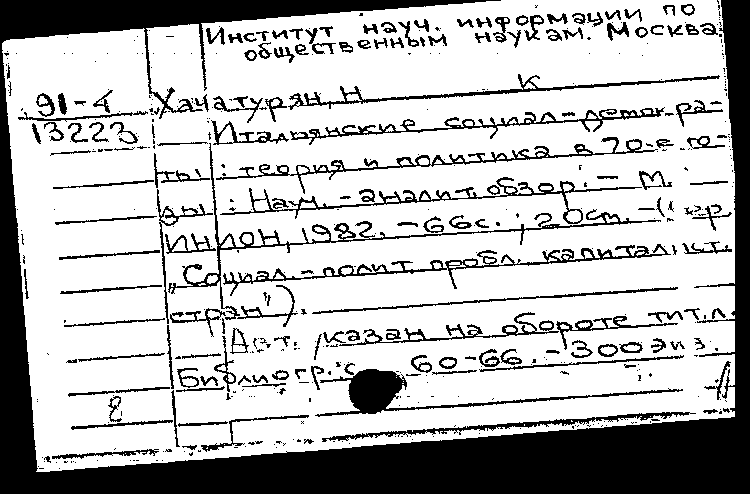 Институт науч. информации по
общественным наукам. Москва.
91-4
13223
Хачатурян, Н К
Итальянские социал-демокра-
ты: теория и политика в 70-е го-
ды: Науч.-аналит. обзор. - М.:
ИНИОН, 1982. - 66 с.; 20 см. - (Сер.
"Социал.-полит. пробл. капиталист.
стран").
Авт. указан на обороте тит. л.
Библиогр.: с. 60-66. - 300 экз.